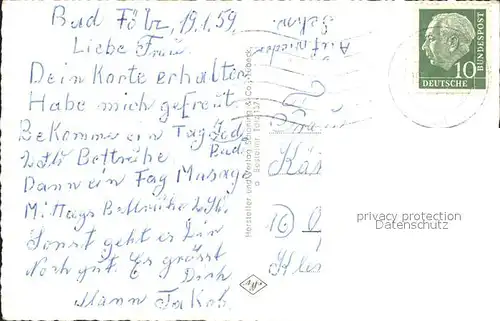 Bad Tölz, 19.1.59
Liebe Frau.
Dein Karte erhalten
Habe mich gefreut
Bekomme ein Tag Jod
Bad
2 Std Bettruhe
Dann ein Tag Masag
Mittags Bettruhe 2 St.
Sonst geht es Dir
Noch gut. Es grüsst
Dich
Mann Jakob.
Auf wieder
Sehn.
Käs
16
Kles
10
DEUTSCHE
BUNDESPOST
Hersteller und Verlag Schöning & Co., Lübeck
privacy protection
Datenschutz